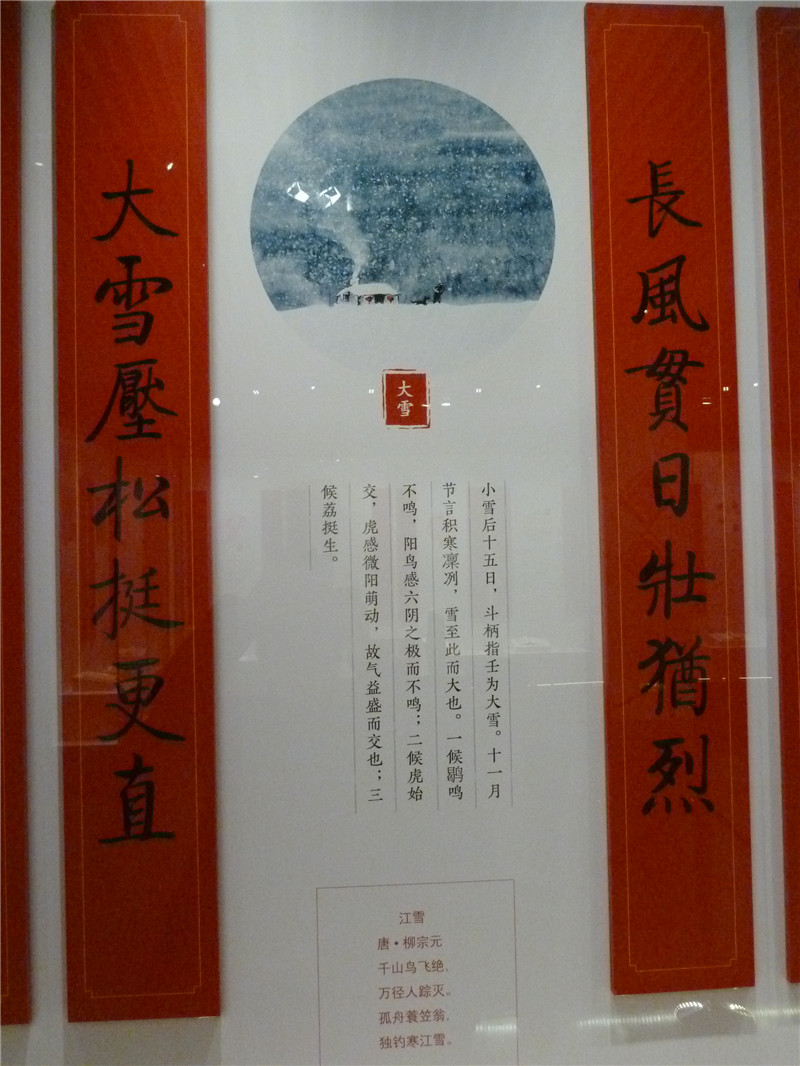 長風貫日壯猶烈
大雪壓松挺更直
大雪
小雪后十五日，斗柄指壬为大雪。十一月
节言积寒凛冽，雪至此而大也。一候鹖鸣
不鸣，阳鸟感六阴之极而不鸣；二候虎始
交，虎感微阳萌动，故气益盛而交也；三
候荔挺生。
江雪
唐·柳宗元
千山鸟飞绝，
万径人踪灭。
孤舟蓑笠翁，
独钓寒江雪。